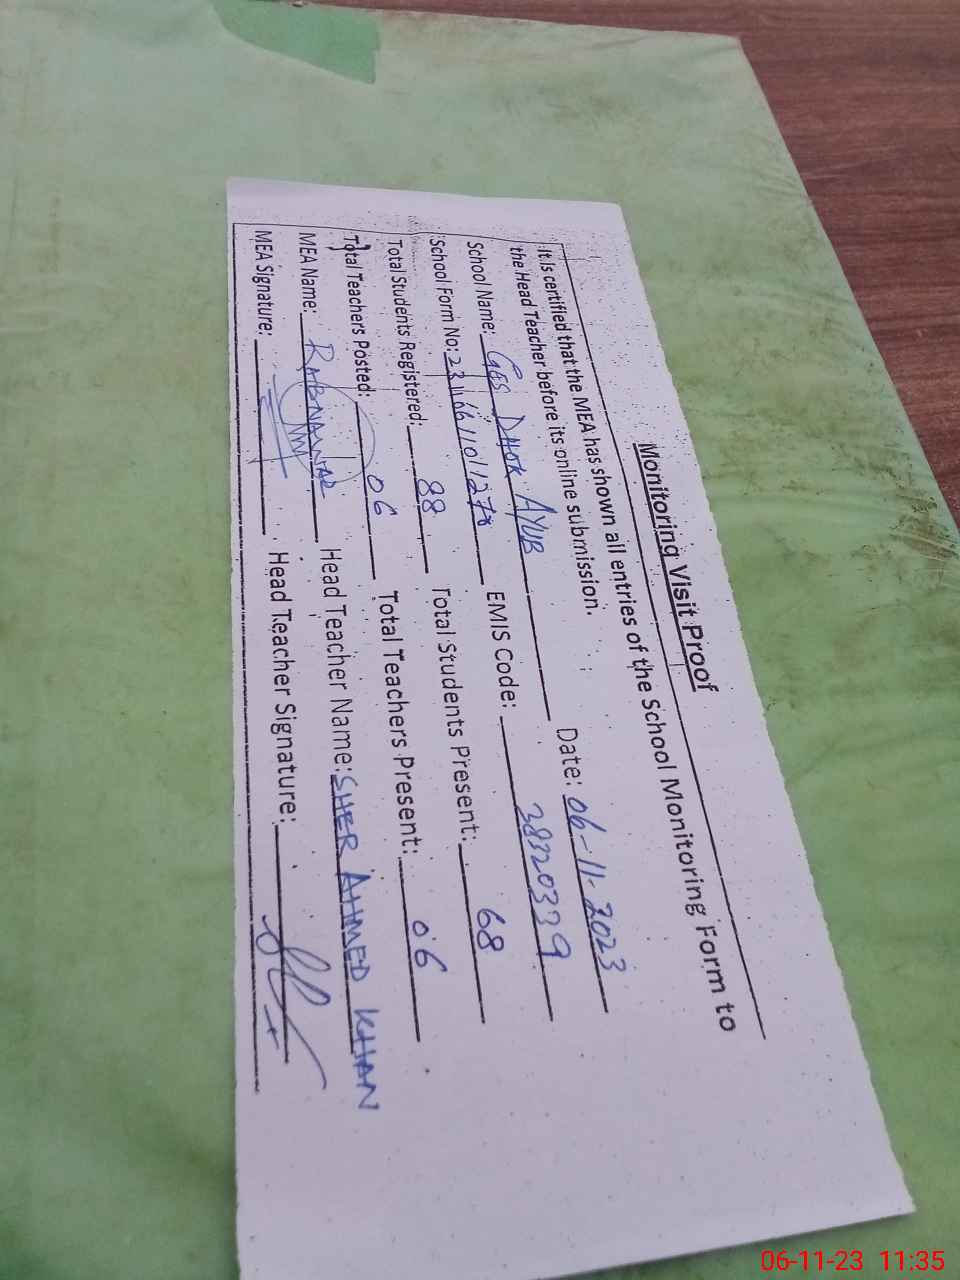 Monitoring Visit Proof
It Is certified that the MEA has shown all entries of the School Monitoring Form to
the Head Teacher before its online submission.
School Name: GES DHOK AYUB Date: 06-11-2023
School Form No: EMIS Code: 38320339
Total Students Registered: 88 Total Students Present: 68
Total Teachers Posted: 06 Total Teachers Present: 06
MEA Name: RABNAWAZ Head Teacher Name: SHER AHMED KHAN
MEA Signature: Head Teacher Signature:
06-11-23 11:35